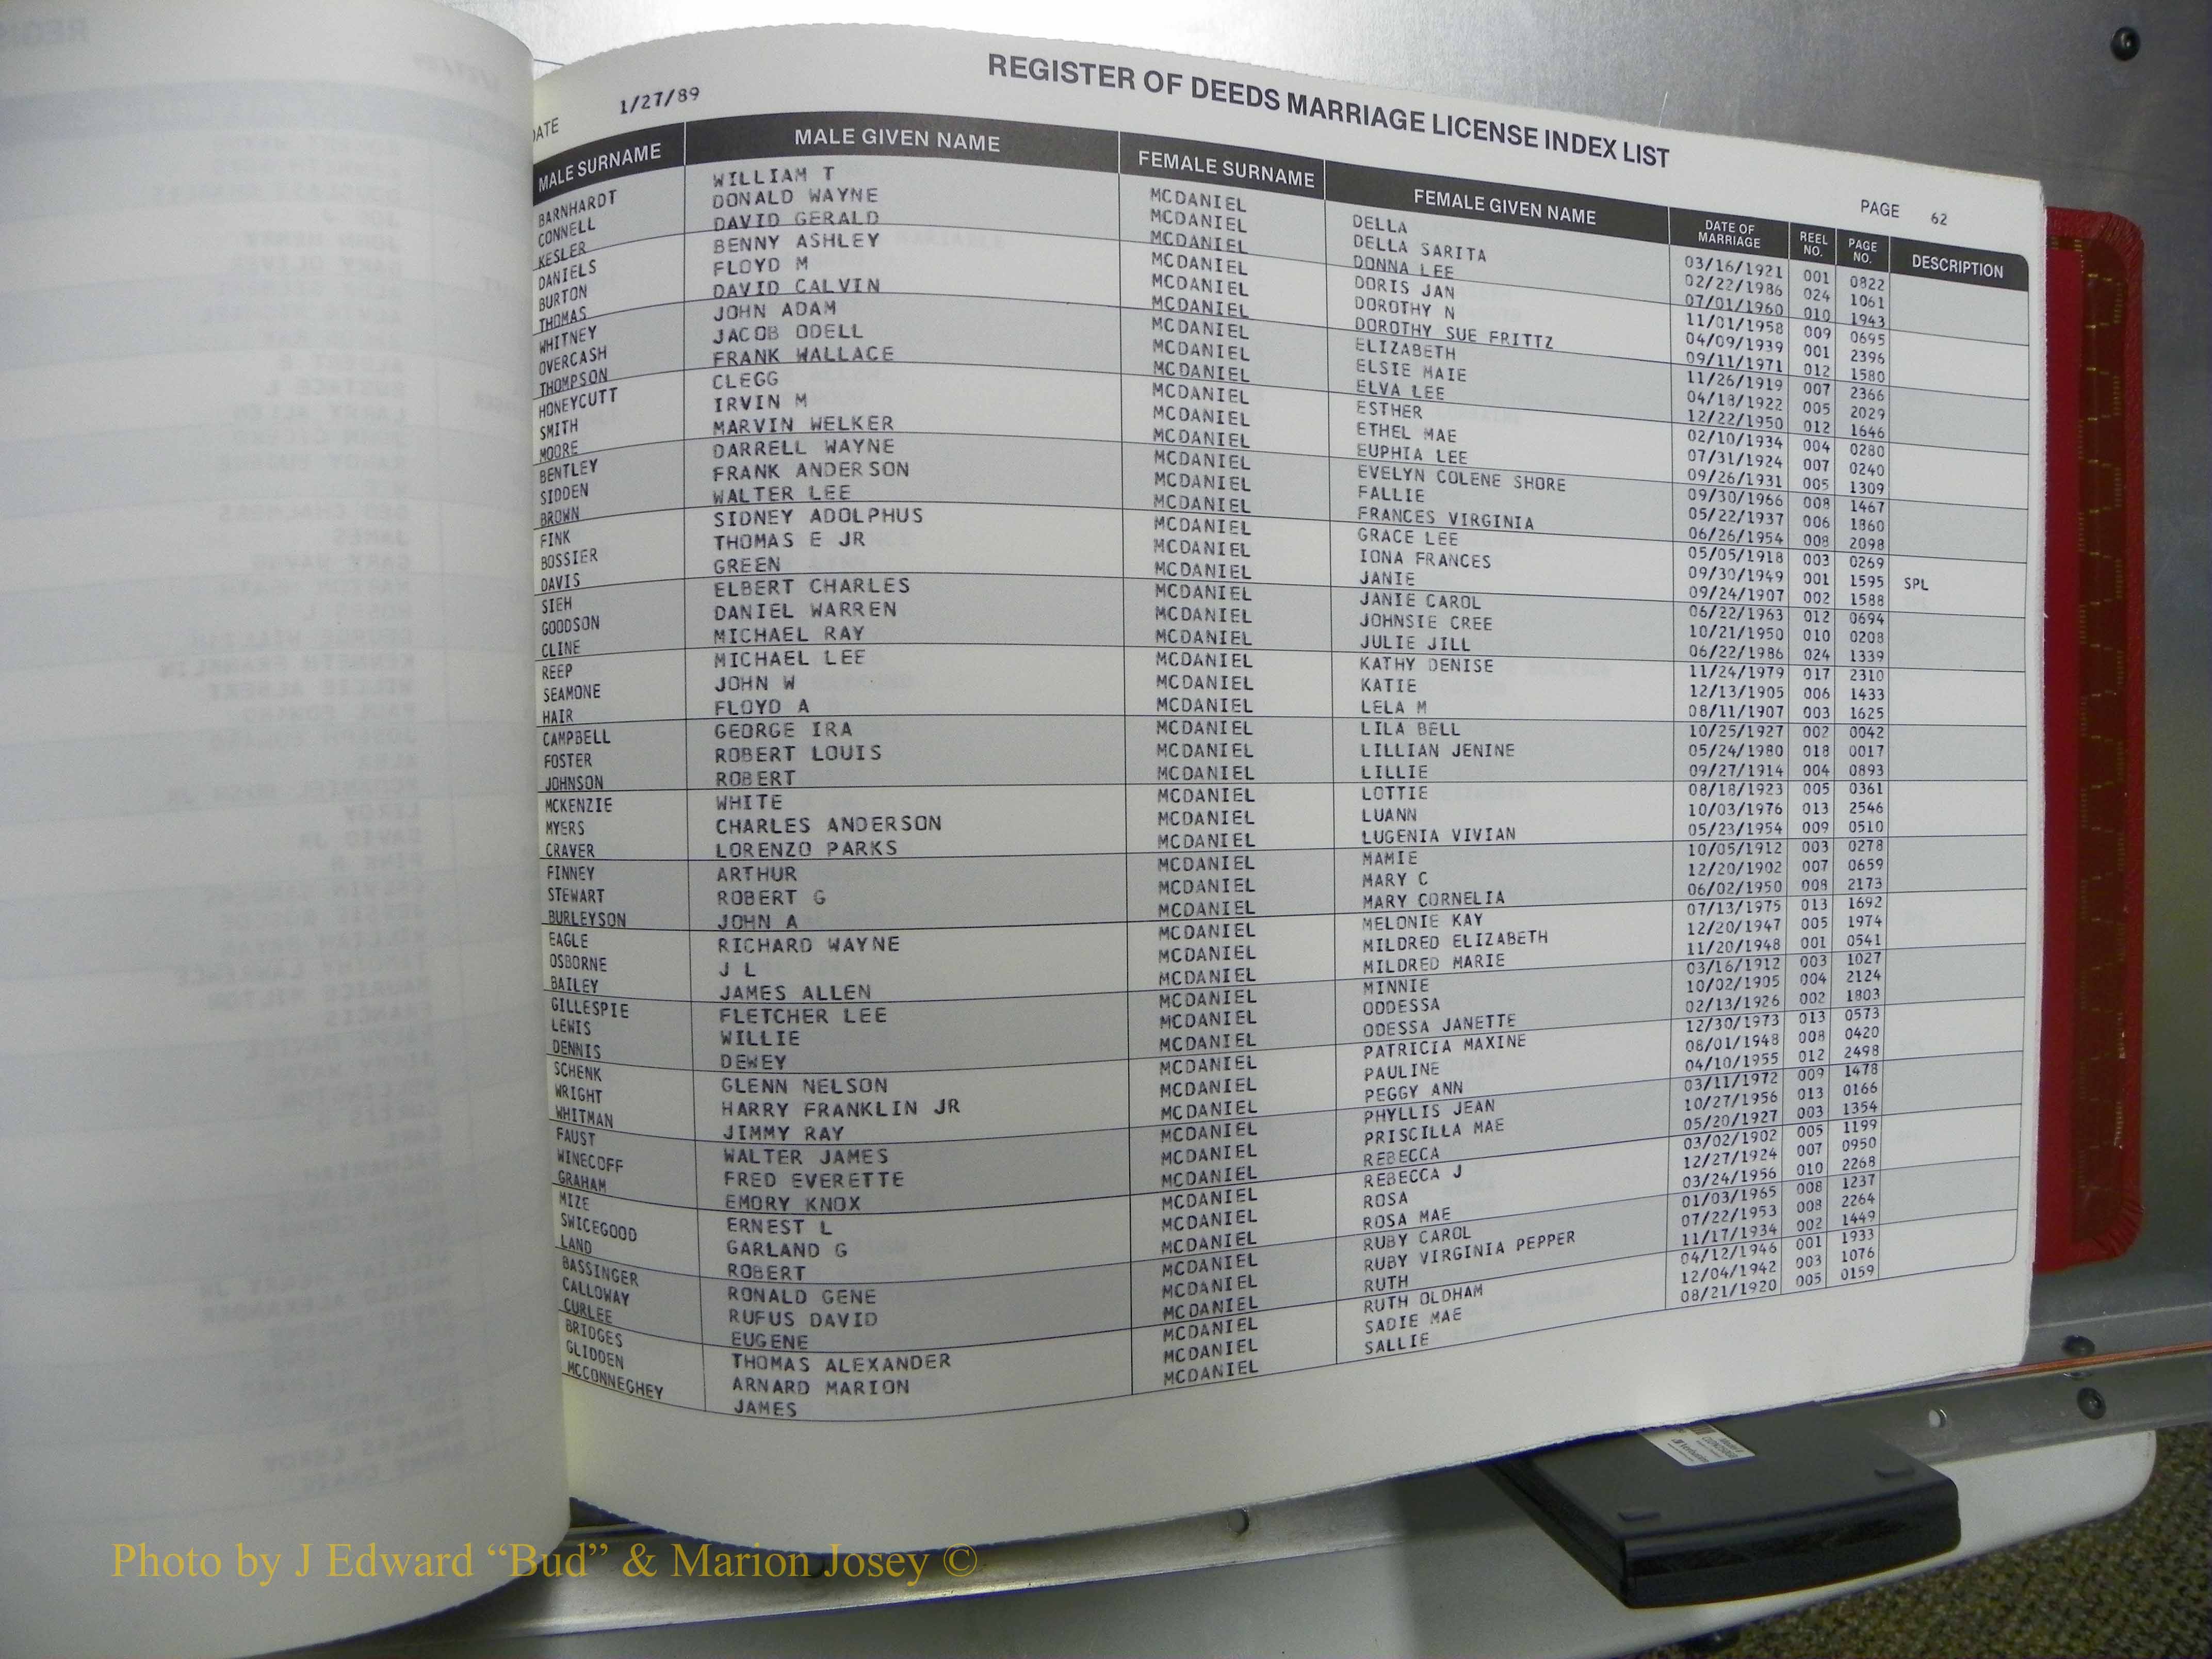 REGISTER OF DEEDS MARRIAGE LICENSE INDEX LIST
DATE 1/27/89 PAGE 62
MALE SURNAME MALE GIVEN NAME FEMALE SURNAME FEMALE GIVEN NAME DATE OF MARRIAGE REEL NO. PAGE NO. DESCRIPTION
BARNHARDT WILLIAM T MCDANIEL DELLA 03/16/1921 001 0822
CONNELL DONALD WAYNE MCDANIEL DELLA SARITA 02/22/1986 024 1061
KESLER DAVID GERALD MCDANIEL DONNA LEE 07/01/1960 010 1943
DANIELS BENNY ASHLEY MCDANIEL DORIS JAN 11/01/1958 009 0695
BURTON FLOYD M MCDANIEL DOROTHY N 04/09/1939 001 2396
THOMAS DAVID CALVIN MCDANIEL DOROTHY SUE FRITTZ 09/11/1971 012 1580
WHITNEY JOHN ADAM MCDANIEL ELIZABETH 11/26/1919 007 2366
OVERCASH JACOB ODELL MCDANIEL ELSIE MAIE 04/18/1922 005 2029
THOMPSON FRANK WALLACE MCDANIEL ELVA LEE 12/22/1950 012 1646
HONEYCUTT CLEGG MCDANIEL ESTHER 02/10/1934 004 0280
SMITH IRVIN M MCDANIEL ETHEL MAE 07/31/1924 007 0240
MOORE MARVIN WELKER MCDANIEL EUPHIA LEE 09/26/1931 005 1309
BENTLEY DARRELL WAYNE MCDANIEL EVELYN COLENE SHORE 09/30/1966 008 1467
SIDDEN FRANK ANDERSON MCDANIEL FALLIE 05/22/1937 006 1860
BROWN WALTER LEE MCDANIEL FRANCES VIRGINIA 06/26/1954 008 2098
FINK SIDNEY ADOLPHUS MCDANIEL GRACE LEE 05/05/1918 003 0269
BOSSIER THOMAS E JR MCDANIEL IONA FRANCES 09/30/1949 001 1595 SPL
DAVIS GREEN MCDANIEL JANIE 09/24/1907 002 1588
SIEH ELBERT CHARLES MCDANIEL JANIE CAROL 06/22/1963 012 0694
GOODSON DANIEL WARREN MCDANIEL JOHNSIE CREE 10/21/1950 010 0208
CLINE MICHAEL RAY MCDANIEL JULIE JILL 06/22/1986 024 1339
REEP MICHAEL LEE MCDANIEL KATHY DENISE 11/24/1979 017 2310
SEAMONE JOHN W MCDANIEL KATIE 12/13/1905 006 1433
HAIR FLOYD A MCDANIEL LELA M 08/11/1907 003 1625
CAMPBELL GEORGE IRA MCDANIEL LILA BELL 10/25/1927 002 0042
FOSTER ROBERT LOUIS MCDANIEL LILLIAN JENINE 05/24/1980 018 0017
JOHNSON ROBERT MCDANIEL LILLIE 09/27/1914 004 0893
MCKENZIE WHITE MCDANIEL LOTTIE 08/18/1923 005 0361
MYERS CHARLES ANDERSON MCDANIEL LUANN 10/03/1976 013 2546
CRAVER LORENZO PARKS MCDANIEL LUGENIA VIVIAN 05/23/1954 009 0510
FINNEY ARTHUR MCDANIEL MAMIE 10/05/1912 003 0278
STEWART ROBERT G MCDANIEL MARY C 12/20/1902 007 0659
BURLEYSON JOHN A MCDANIEL MARY CORNELIA 06/02/1950 008 2173
EAGLE RICHARD WAYNE MCDANIEL MELONIE KAY 07/13/1975 013 1692
OSBORNE J L MCDANIEL MILDRED ELIZABETH 12/20/1947 005 1974
BAILEY JAMES ALLEN MCDANIEL MILDRED MARIE 11/20/1948 001 0541
GILLESPIE FLETCHER LEE MCDANIEL MINNIE 03/16/1912 003 1027
LEWIS WILLIE MCDANIEL ODDESSA 10/02/1905 004 2124
DENNIS DEWEY MCDANIEL ODESSA JANETTE 02/13/1926 002 1803
SCHENK GLENN NELSON MCDANIEL PATRICIA MAXINE 12/30/1973 013 0573
WRIGHT HARRY FRANKLIN JR MCDANIEL PAULINE 08/01/1948 008 0420
WHITMAN JIMMY RAY MCDANIEL PEGGY ANN 04/10/1955 012 2498
FAUST WALTER JAMES MCDANIEL PHYLLIS JEAN 03/11/1972 009 1478
WINECOFF FRED EVERETTE MCDANIEL PRISCILLA MAE 10/27/1956 013 0166
GRAHAM EMORY KNOX MCDANIEL REBECCA 05/20/1927 003 1354
MIZE ERNEST L MCDANIEL REBECCA J 03/02/1902 005 1199
SWICEGOOD GARLAND G MCDANIEL ROSA 12/27/1924 007 0950
LAND ROBERT MCDANIEL ROSA MAE 03/24/1956 010 2268
BASSINGER RONALD GENE MCDANIEL RUBY CAROL 01/03/1965 008 1237
CALLOWAY RUFUS DAVID MCDANIEL RUBY VIRGINIA PEPPER 07/22/1953 008 2264
CURLEE EUGENE MCDANIEL RUTH 11/17/1934 002 1449
BRIDGES THOMAS ALEXANDER MCDANIEL RUTH OLDHAM 04/12/1946 001 1933
GLIDDEN ARNARD MARION MCDANIEL SADIE MAE 12/04/1942 003 1076
MCCONNEGHEY JAMES MCDANIEL SALLIE 08/21/1920 005 0159
Photo by J Edward “Bud” & Marion Josey ©